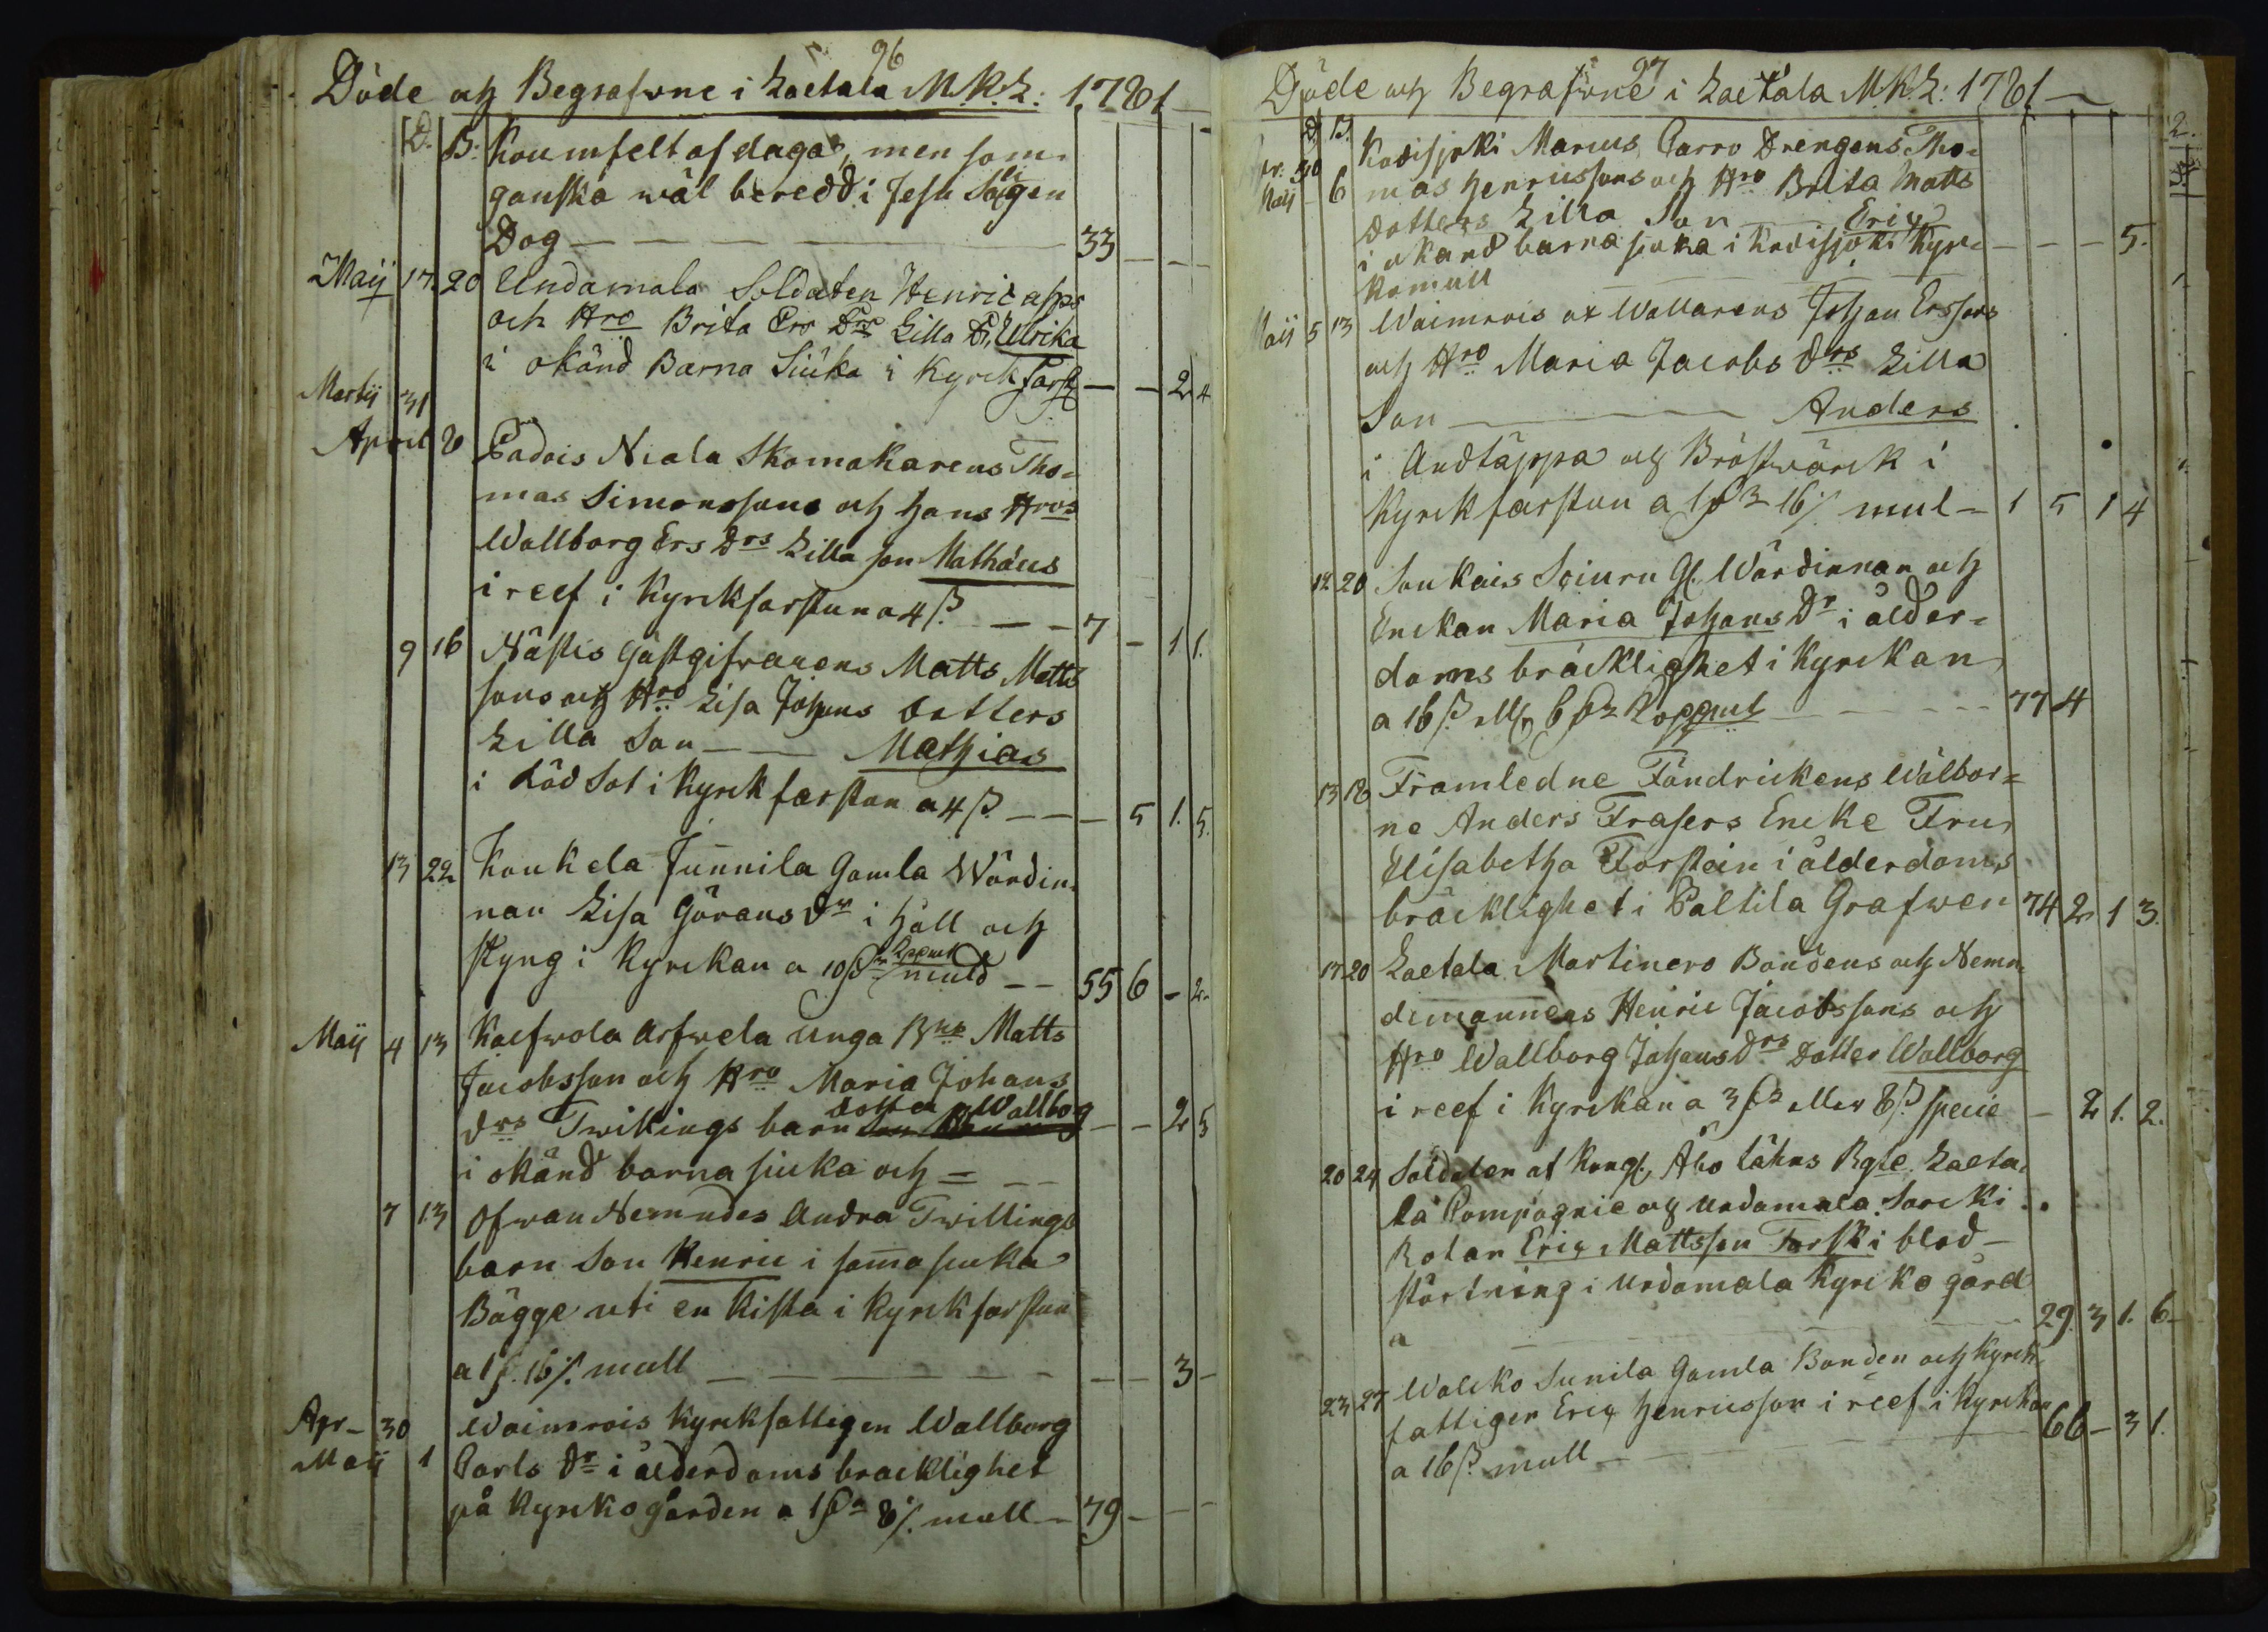 96
Döde och Begrafvne i Loetala M.K.L: 1781
D. B. Kom infelt af daga, men som
ganska wäl beredd i Jesu Sägen
Dog — — — 33
Maij 17. 20 Undamala Soldaten Henric
och Hro Brita Ers Drs Lilla Dr. Ulrika
i okänd Barna Siuka i Kyrck Farst — — 2 4
Martij 31
April 8 Padois Niala Skomakarens Tho=
mas Simonssons och hans Hros
Wallborg Ers Drs Lilla son Mathäus
i reef i Kyrckfarstun a 4 ß. — — 7 — 1 1.
9 16 Nästis Gästgifvarens Matts Matts
sons och Hro Lisa Johans dotters
Lilla Son — — Mathias
i Rödsot i Kyrckfarstun a 4 ß. — — — 5 1. 5.
13 22 Koukela Junnila Gamla Wärdin=
nan Lisa Görans Dr i håll och
styng i Kyrckan a 10 muld — — 55 6 — 2
Maij 4 13 Kaefwola Arfwela unga Matts
Jacobsson och Hro Maria Johans
Drs Twillings barn dotter Wallborg — — 2 5
i okänd barnasiuka och =
7 13 Ofwan Nemndes Andra Twillings
barn Son Henric i samma siuka
Bägge uti en Kista i Kyrckfarstun
a 1 16 mull — — — — 3 —
Apr. 30 Waimrois Kyrckfattigen Wallborg
Maij 1 Carls Dr i ålderdoms bräcklighet
på Kyrckogården a 8 mull — 79 — —
97
Döde och Begrafvne i Loetala M.K.L: 1781
D. B.
Apr. 30 Kovisjoki Marcus Carro Drengens Tho=
Maij 6 mas Henricssons och Hro Brita Matts
dotters Lilla Son — Eric
i okänd barnasiuka i Kovisjoki Kyrc — — — 5.
komull
Maij 5 13 Waimrois ox Wallarens Johan Ersons
och Hro Maria Jacobs Drs Lilla
Son — — — Anders
i Andtäppa och Bröstwärck i
Kyrckfarstun a 16 mul= 1 5 1 4
12 20 Soukais Sciuru Gl. Wärdinnan och
Enckan Maria Johans Dr i ålder=
doms bräcklighet i Kyrckan
a 16 ß. 6 — — — 77 4
13 18 Framledne Fändrickens Wälbor=
ne Anders Frasers Encke Fru
Elisabetha Forstein i ålderdoms
bräcklighet i Paltila Grafwen 74 2 1 3.
17 20 Loetala Martinero Bondens och Nemn=
demannens Henric Jacobssons och
Hro Wallborg Johans Drs Dotter Wallborg
i reef i Kyrckan a 3 eller 8 ß specie — 2 1. 2.
20 24 Soldaten af Kongl. Åbo Lähns Regte. Loeta=
la Compagnie och Undamala Sarcki
Rotan Eric Mattsson Forsk i blod=
störtning i Undamala Kyrckogård
a — — — 29. 3 1. 6
23 27 Walcko Junila Gamla Bonden och Kyrck=
fattigen Eric Henricsson i reef i Kyrckan
a 16 ß. mull — — — 66 — 3 1.